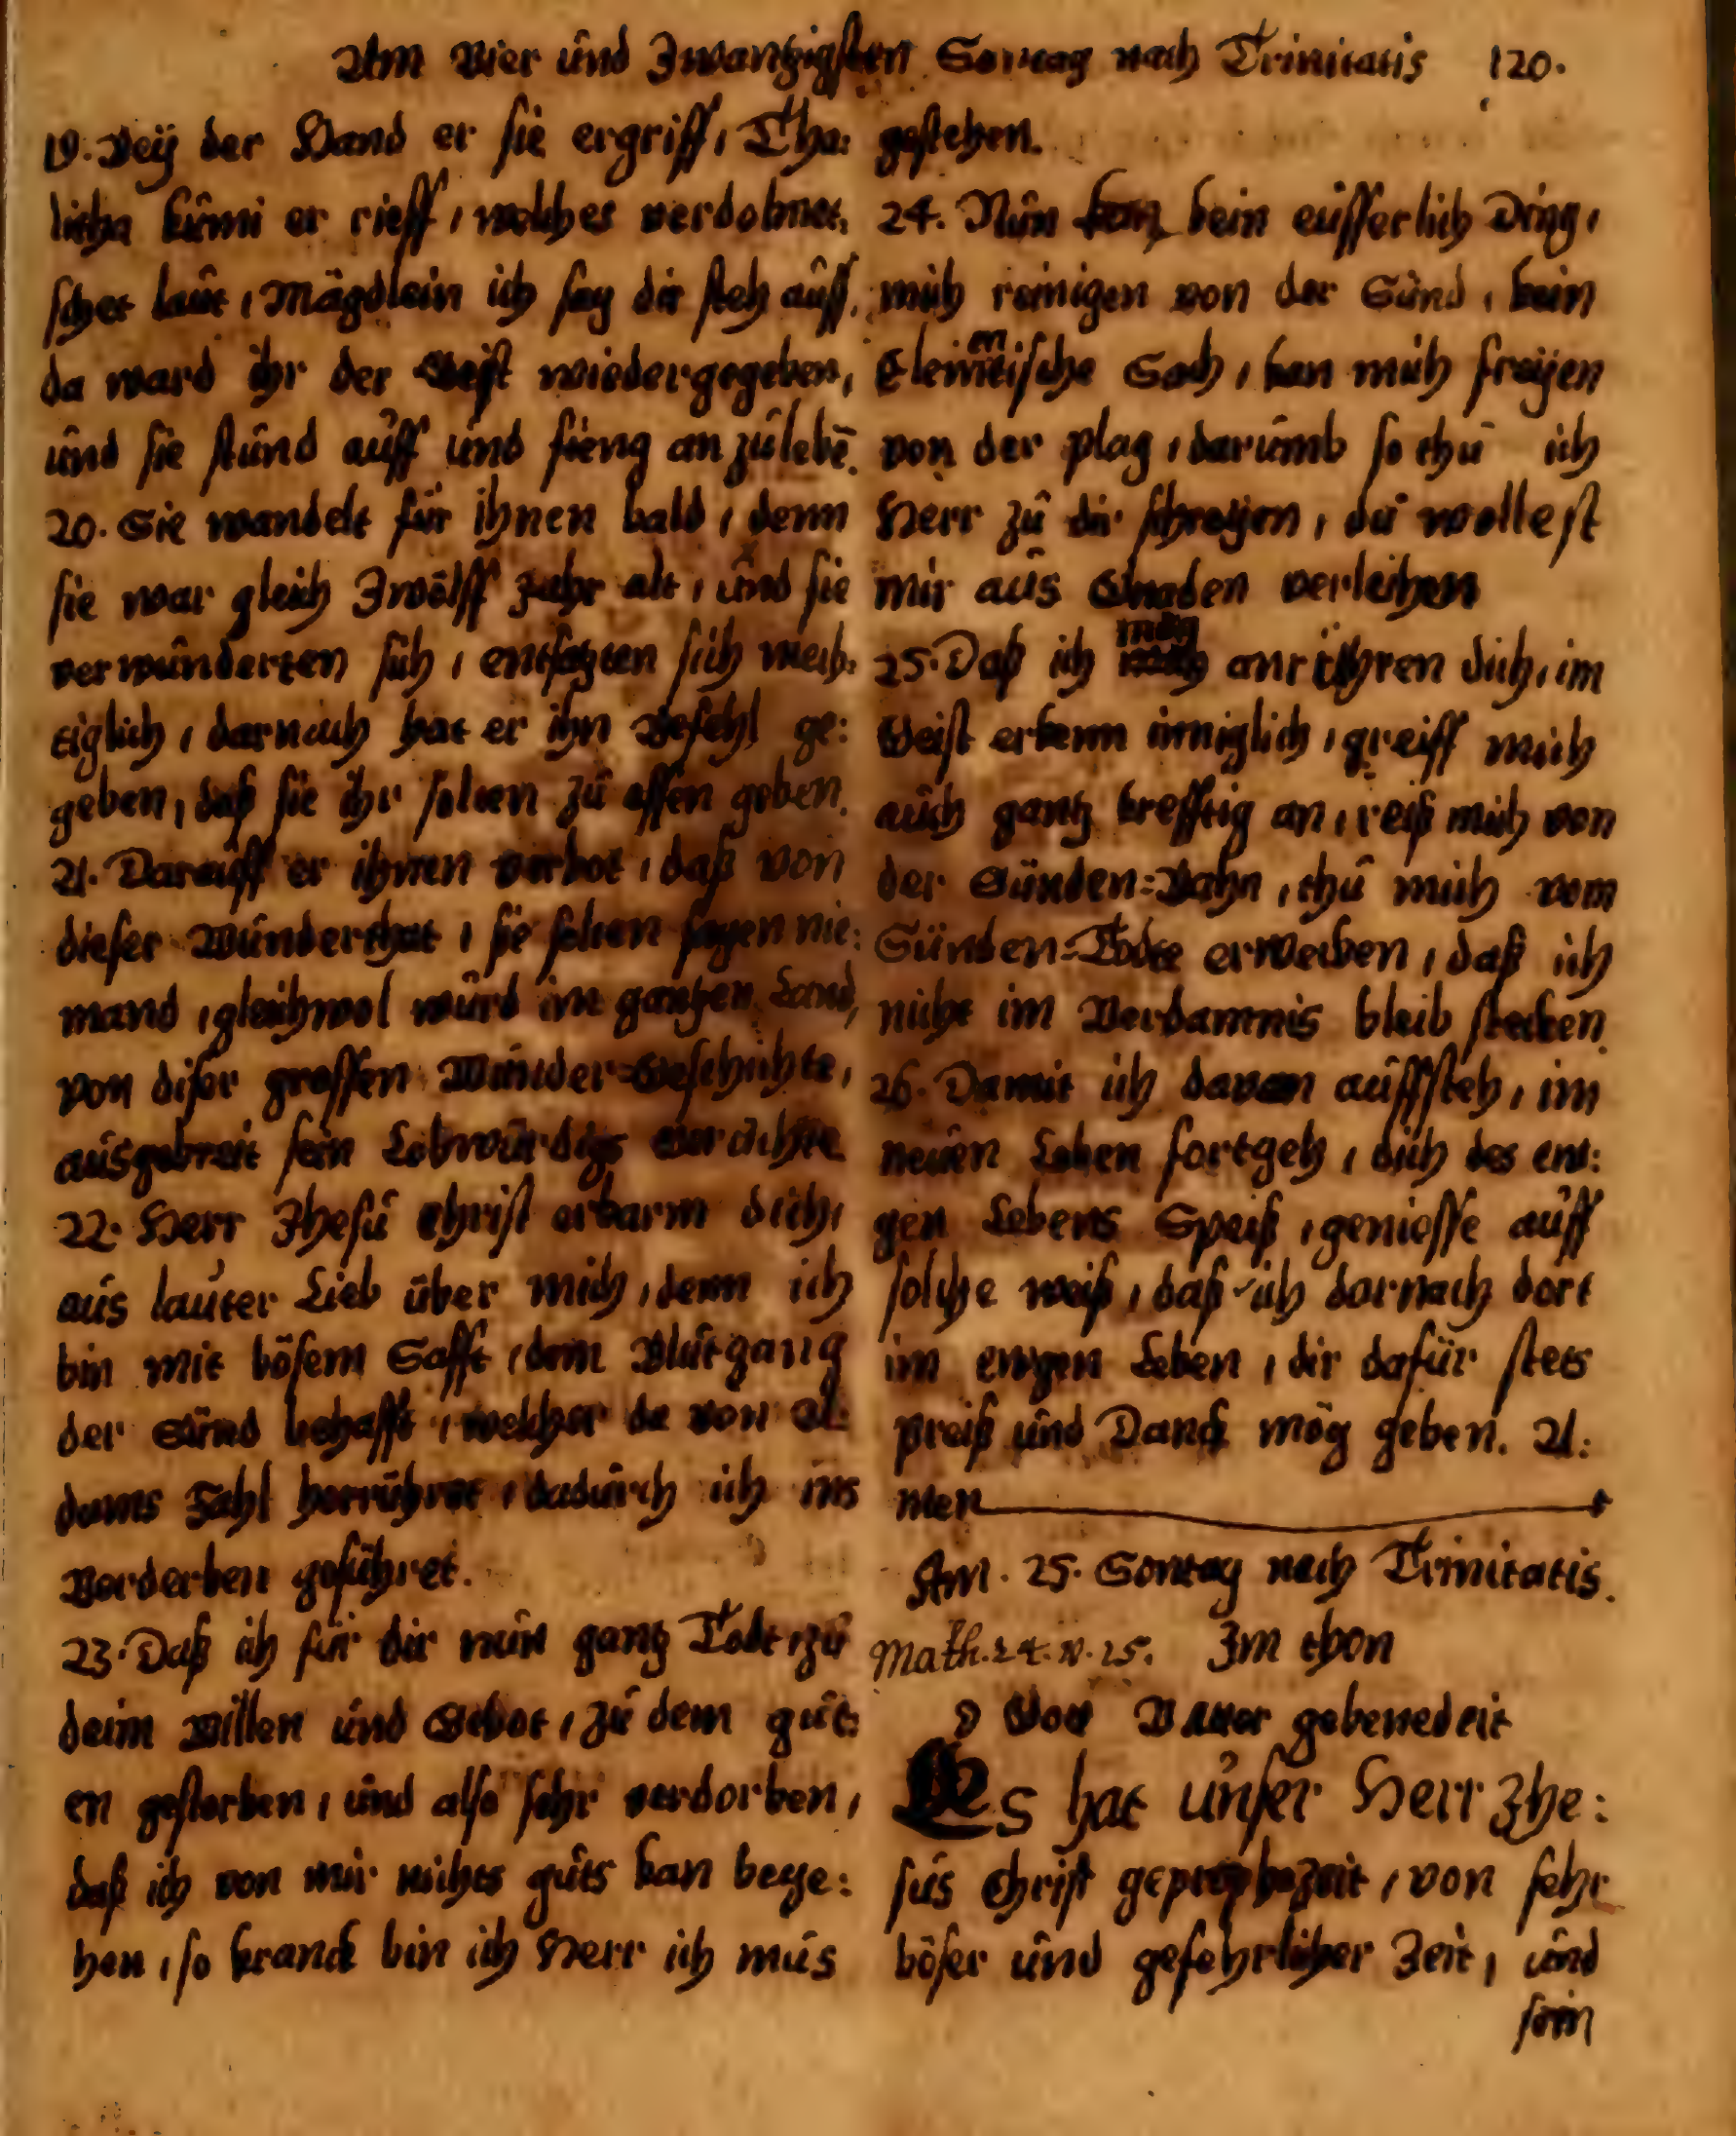 Am Vier und Zwantzigsten Sontag nach Trinitatis 120.
19. Beÿ der Hand er sie ergriff, Tha:
litha kumi er rieff, welches verdolmet,
schet laut, Mägdlein ich sag dir steh auff,
da ward ihr der Geist wiedergegeben,
und sie stund auff und fieng an zu lebē.
20. Sie wandelt für ihnen bald, denn
sie war gleich Zwölff Jahr alt, und sie
verwunderten sich, entsatzten sich mech:
tiglich, darnach hat er ihn Befehl ge:
geben, daß sie ihr solten zu essen geben.
21. Darauff er ihnen verbot, daß von
dieser Wunderthat, sie solten sagen nie:
mand, gleichwol wurd im gantzen Land,
von diser grossen Wunder=Geschichte,
ausgebreit sein Lobwürdigs
22. Herr Jhesu Christ erbarm dich,
aus lauter Lieb über mich, denn ich
bin mit bösem Safft, dem Blutgang
der Sünd behafft, welcher da von A:
dams Fahl herrühret, dadurch ich ins
Verderben geführet.
23. Daß ich für dir nun gantz Todt, zu
deim Willen und Gebot, zu dem gut:
en gestorben, und also sehr verdorben,
daß ich von mir nichts guts kan bege:
hen, so kranck bin ich Herr ich mus
gestehen.
24. Nun kan kein eusserlich Ding,
mich reinigen von der Sünd, kein
Elemētische Sach, kan mich freÿen
von der plag, darumb so thu ich
Herr zu dir schreÿen, du wollest
mir aus Gnaden verleihen
25. Daß ich mög anrühren dich, im
Geist erkenn inniglich, greiff mich
auch gantz krefftig an, reiß mich von
der Sünden=Bahn, thu mich vom
Sünden=Todte erwecken, daß ich
nicht im Verdamnis bleib stecken.
26. Damit ich davon auffsteh, im
neuen Leben fortgeh, dich des ew:
gen Lebens Speiß, geniesse auff
solche weiß, daß ich darnach dort
im ewgen Leben, dir dafür stets
preiß und Danck mög geben. A:
men
Am. 25. Sontag nach Trinitatis.
Math. 24. v. 15. Im thon
O Gott Vatter gebenedeit
Es hat unser Herr Jhe:
sus Christ geprophezeit, von sehr
böser und gefehrlicher Zeit, und
sein